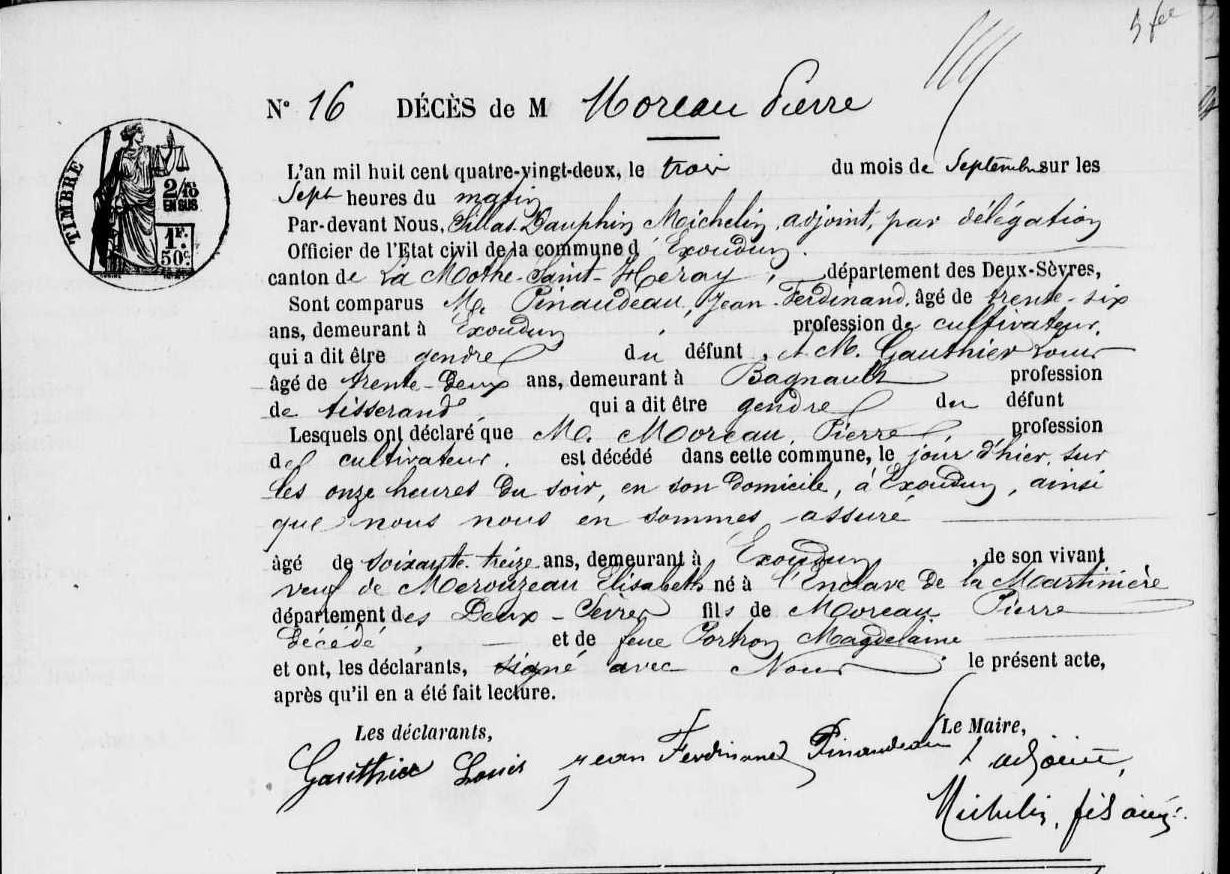 N° 16 DÉCÈS de M Moreau Pierre
TIMBRE
2/10
EN SUS
1F.
50c.
L'an mil huit cent quatre-vingt-deux, le trois du mois de Septembre sur les
Sept heures du matin
Par-devant Nous, Dauphin Michelin, adjoint, par délégation
Officier de l'Etat civil de la commune d'Exoudun.
canton de La Mothe-Saint-Héray, département des Deux-Sèvres,
Sont comparus M. Pinaudeau, Jean-Ferdinand, âgé de trente-six
ans, demeurant à Exoudun, profession de cultivateur,
qui a dit être gendre du défunt, et M. Gauthier Louis
âgé de trente-deux ans, demeurant à Bagnault profession
de tisserand qui a dit être gendre du défunt
Lesquels ont déclaré que M. Moreau, Pierre, profession
de cultivateur, est décédé dans cette commune, le jour d'hier, sur
les onze heures du soir, en son domicile, à Exoudun, ainsi
que nous nous en sommes assuré
âgé de soixante-treize ans, demeurant à Exoudun, de son vivant
veuf de Merouzeau Elisabeth né à l'Enclave de la Martinière
département des Deux-Sèvres fils de Moreau Pierre
décédé, et de feue Portron Magdelaine
et ont, les déclarants, signé avec Nous le présent acte,
après qu'il en a été fait lecture.
Les déclarants, Le Maire,
Gauthier Louis jean Ferdinand Pinaudeau l'adjoint,
Michelin, fils aîné